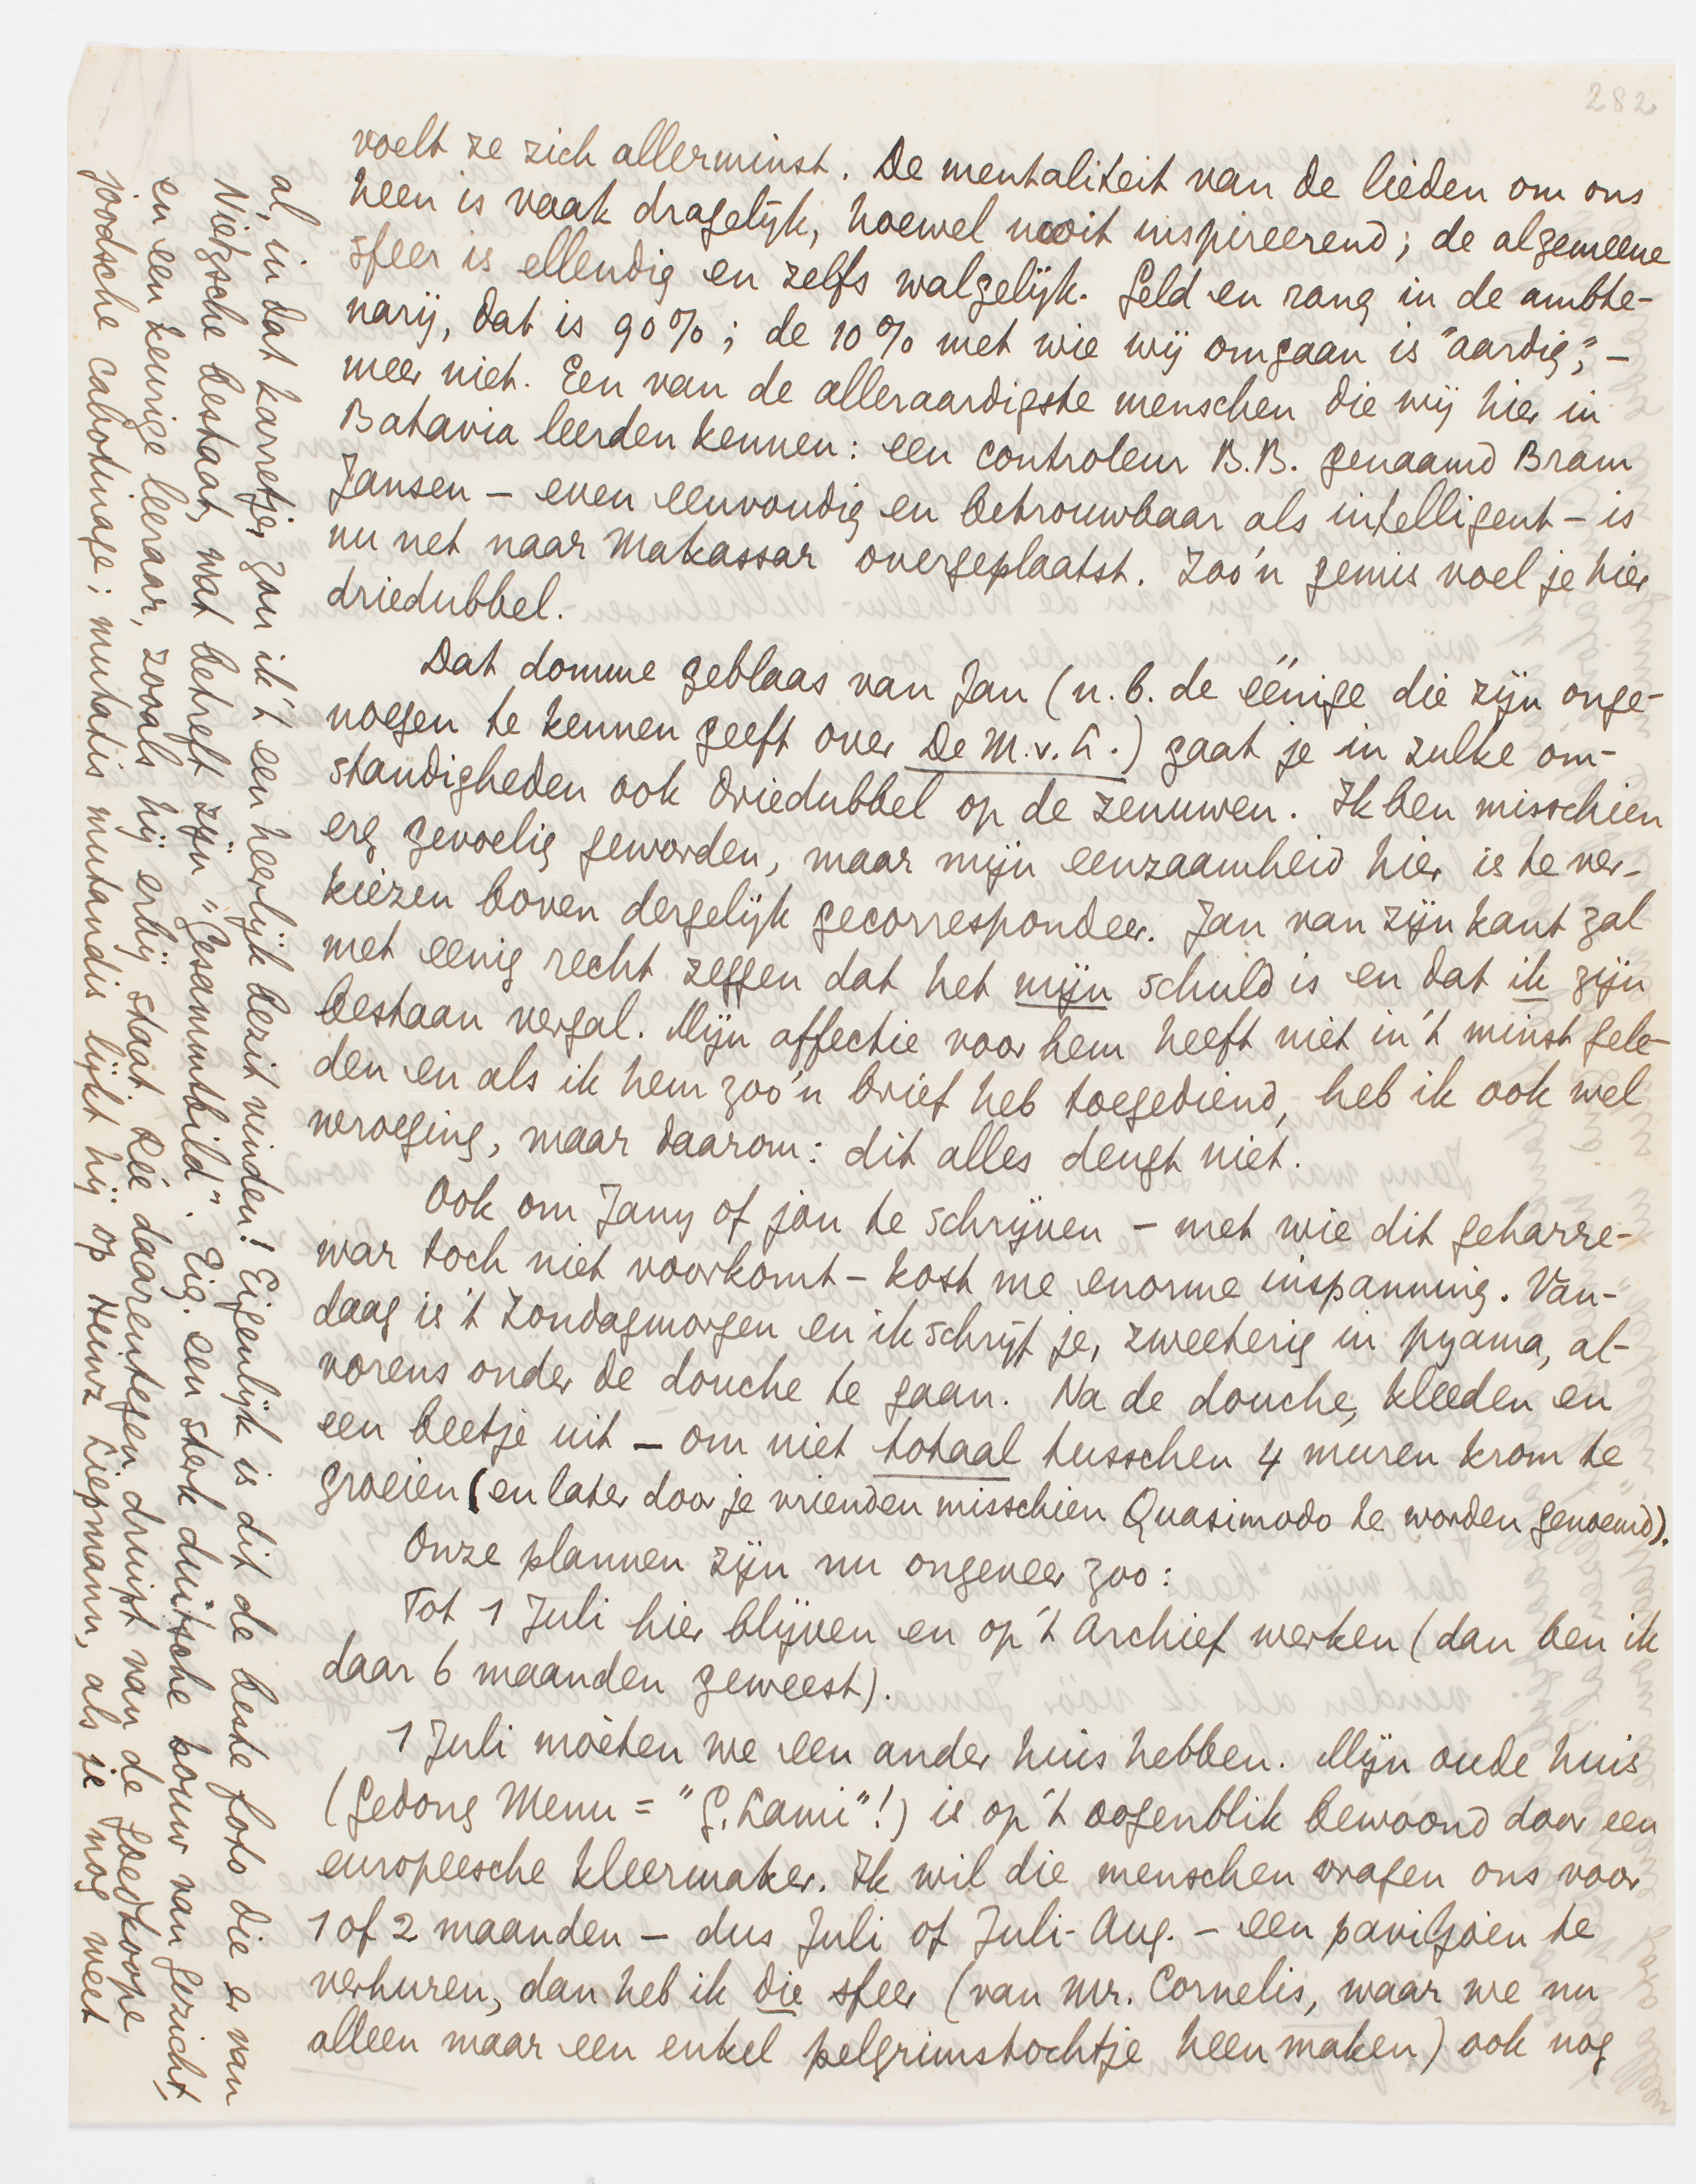 282
voelt ze zich allerminst. De mentaliteit van de lieden om ons
heen is vaak dragelijk, hoewel nooit inspireerend; de algemeene
sfeer is ellendig en zelfs walgelijk. Geld en rang in de ambte-
narij, dat is 90%; de 10% met wie wij omgaan is "aardig", –
meer niet. Een van de alleraardigste menschen die wij hier in
Batavia leerden kennen: een controleur B.B. genaamd Bram
Jansen – even eenvoudig en betrouwbaar als intelligent – is
nu net naar Makassar overgeplaatst. Zoo'n gemis voel je hier
driedubbel.
Dat domme geblaas van Jan (n.b. de éénige die zijn onge-
noegen te kennen geeft over De M.v.K.) gaat je in zulke om-
standigheden ook driedubbel op de zenuwen. Ik ben misschien
erg gevoelig geworden, maar mijn eenzaamheid hier is te ver-
kiezen boven dergelijk gecorrespondeer. Jan van zijn kant zal
met eenig recht zeggen dat het mijn schuld is en dat ik zijn
bestaan vergal. Mijn affectie voor hem heeft niet in 't minst gele-
den en als ik hem zoo'n brief heb toegediend, heb ik ook wel
wroeging, maar daarom: dit alles deugt niet.
Ook om Jany of jou te schrijven – met wie dit geharre-
war toch niet voorkomt – kost me enorme inspanning. Van-
daag is 't Zondagmorgen en ik schrijf je, zweeterig in pyama, al-
vorens onder de douche te gaan. Na de douche, kleeden en
een beetje uit – om niet totaal tusschen 4 muren krom te
groeien (en later door je vrienden misschien Quasimodo te worden genoemd).
Onze plannen zijn nu ongeveer zoo:
Tot 1 Juli hier blijven en op 't Archief werken (dan ben ik
daar 6 maanden geweest).
1 Juli móéten we een ander huis hebben. Mijn oude huis
(Gedong Menu = "G. Lami"!) is op 't oogenblik bewoond door een
europeesche kleermaker. Ik wil die menschen vragen ons voor
1 of 2 maanden – dus Juli of Juli-Aug. – een paviljoen te
verhuren, dan heb ik die sfeer (van Mr. Cornelis, waar we nu
alleen maar een enkel pelgrimstochtje heen maken) ook nog
al, in dat karretje, zou ik 't een heerlijk bezit vinden! Eigenlijk is dit de beste foto die er van
Nietzsche bestaat, wat betreft zijn "Gesammtbild". Eig. een sterk duitsche bouw van gezicht,
en een keurige leeraar, zooals hij erbij staat. Rée daarentegen druipt van de goedkoope
joodsche cabotinage; mutatis mutandis lijkt hij op Heinz Liepmann, als je nog weet